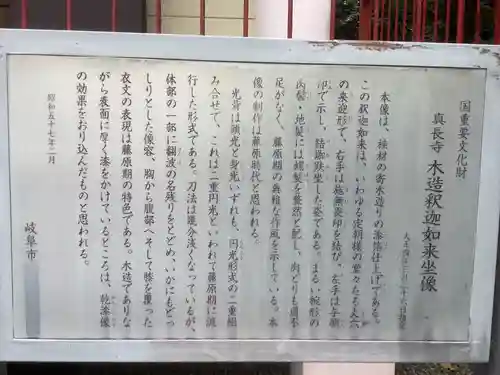 国重要文化財
真長寺 木造釈迦如来坐像
本像は、桧材の寄木造りの漆箔仕上げである。
この釈迦如来は、いわゆる定朝様の堂々たる丈六
の来迎形で、右手は施無畏印を結び、左手は与願
印で示し、結跏趺坐した姿である。まるい椀形の
肉髻・地髪には螺髪を整然と配し、肉どりも過不
足がなく、藤原期の典雅な作風を示している。本
像の制作は藤原時代と思われる。
光背は頭光と身光いずれも、円光形式の二重組
み合せで、これは二重円光といわれて藤原期に流
行した形式である。刀法は幾分浅くなっているが、
体部の一部に翻波の名残りをとどめ、いかにもどっ
しりとした像容、胸から腹部へそして膝を覆った
衣文の表現は藤原期の特色である。木造でありな
がら表面に厚く漆をかけているところは、乾漆像
の効果をおり込んだものと思われる。
昭和五十七年二月
岐阜市